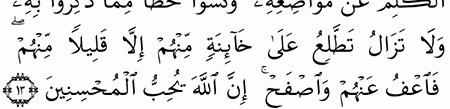 ٱلْكَلِمَ عَن مَّوَاضِعِهِۦ وَنَسُوا۟ حَظًّا مِّمَّا ذُكِّرُوا۟ بِهِۦ ۚ
وَلَا تَزَالُ تَطَّلِعُ عَلَىٰ خَآئِنَةٍ مِّنْهُمْ إِلَّا قَلِيلًا مِّنْهُمْ ۖ
فَٱعْفُ عَنْهُمْ وَٱصْفَحْ ۚ إِنَّ ٱللَّهَ يُحِبُّ ٱلْمُحْسِنِينَ ﴿١٣﴾